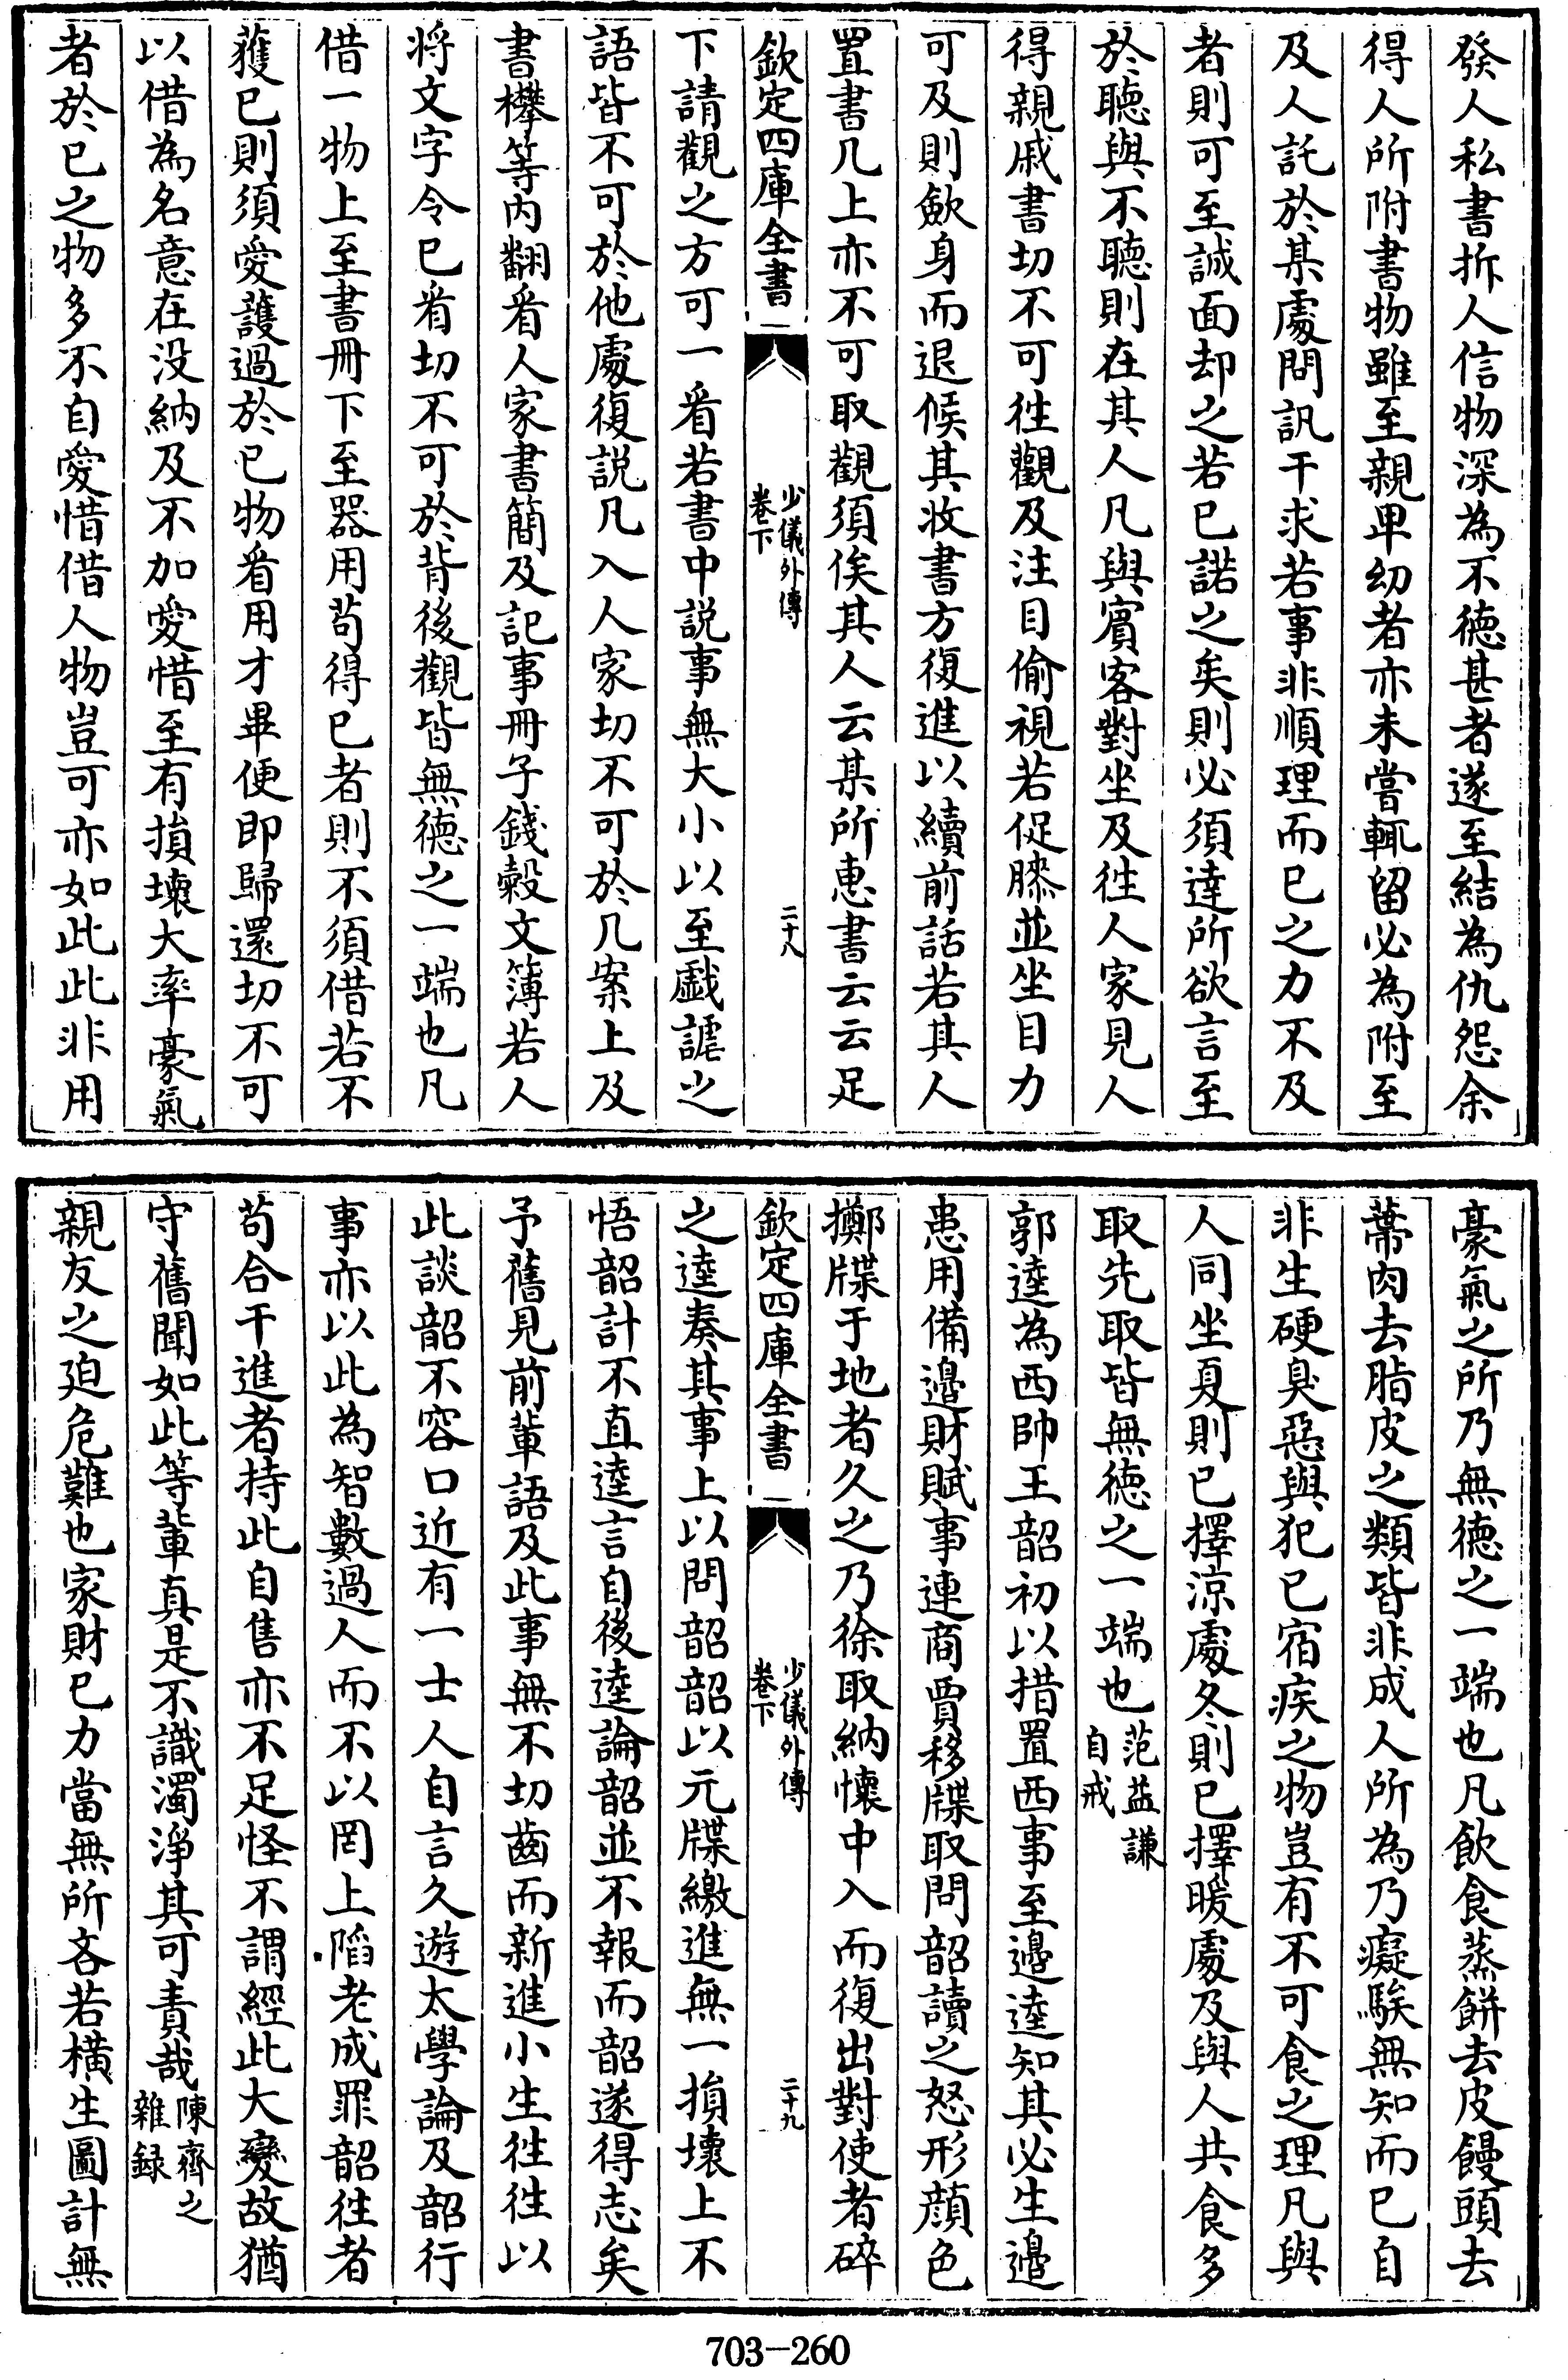 發人私書拆人信物深為不徳甚者遂至結為仇怨余
得人所附書物雖至親卑幼者亦未嘗輒留必為附至
及人託於某處問訊干求若事非順理而已之力不及
者則可至誠面却之若已諾之矣則必須逹所欲言至
於聽與不聽則在其人凡與賔客對坐及徃人家見人
得親戚書切不可徃觀及注目偷視若促膝並坐目力
可及則歛身而退候其收書方復進以續前話若其人
置書几上亦不可取觀須俟其人云某所惠書云云足
欽定四庫全書
少儀外傳
卷下
二十八
下請觀之方可一看若書中説事無大小以至戯謔之
語皆不可於他處復説凡入人家切不可於几案上及
書櫸等内翻看人家書簡及記事冊子錢穀文簿若人
将文字令已看切不可於背後觀皆無徳之一端也凡
借一物上至書冊下至器用苟得已者則不須借若不
獲已則須愛護過於已物看用才畢便即歸還切不可
以借為名意在没納及不加愛惜至有損壊大率豪氣
者於已之物多不自愛惜借人物豈可亦如此此非用
豪氣之所乃無徳之一端也凡飲食蒸餅去皮饅頭去
蔕肉去脂皮之類皆非成人所為乃癡騃無知而已自
非生硬臭惡與犯已宿疾之物豈有不可食之理凡與
人同坐夏則已擇涼處冬則已擇暖處及與人共食多
取先取皆無徳之一端也范益謙
自戒
郭逵為西帥王韶初以措置西事至邊逵知其必生邊
患用備邊財賦事連商賈移牒取問韶讀之怒形顔色
擲牒于地者久之乃徐取納懐中入而復出對使者碎
欽定四庫全書
少儀外傳
卷下
二十九
之逵奏其事上以問韶韶以元牒繳進無一損壊上不
悟韶計不直逵言自後逵論韶並不報而韶遂得志矣
予舊見前輩語及此事無不切齒而新進小生徃徃以
此談韶不容口近有一士人自言久遊太學論及韶行
事亦以此為智數過人而不以罔上䧟老成罪韶徃者
苟合干進者持此自售亦不足怪不謂經此大變故猶
守舊聞如此等輩真是不識濁淨其可責哉陳齊之
雜録
親友之廹危難也家財已力當無所吝若橫生圖計無
703-260